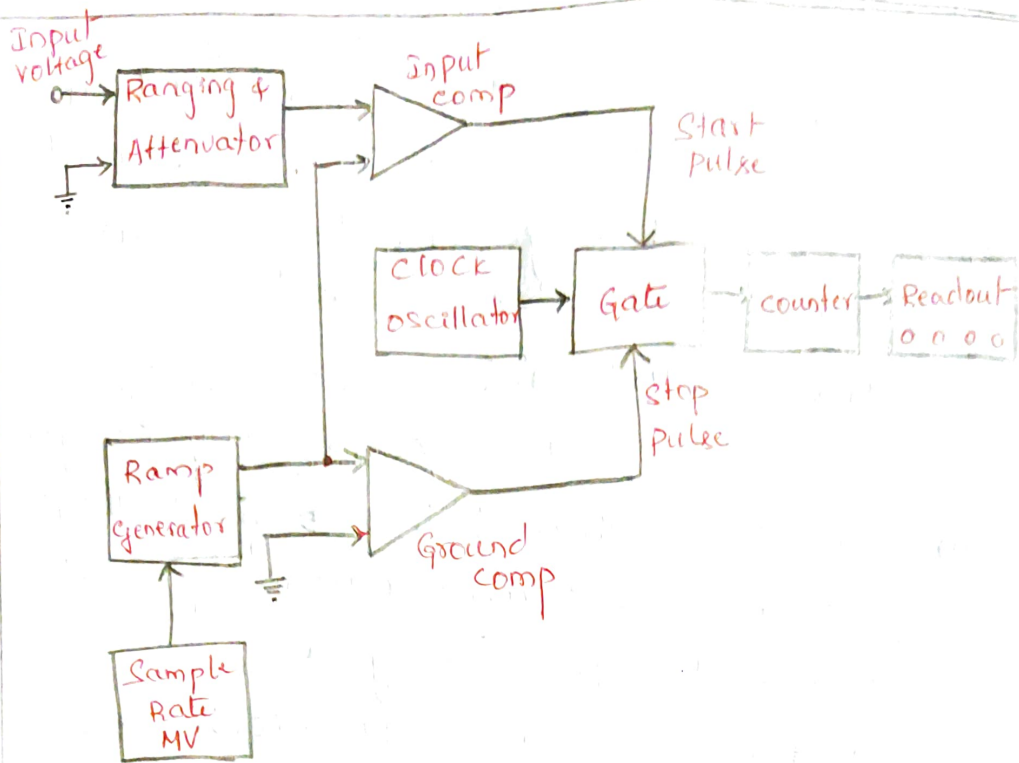 Input
voltage
Ranging &
Attenuator
Input
comp
Start
pulse
Clock
oscillator
Gate
counter
Readout
0 0 0 0
Stop
pulse
Ramp
Generator
Ground
comp
Sample
Rate
MV